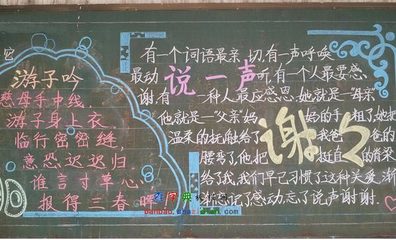 游子吟
慈母手中线,
游子身上衣
临行密密缝,
意恐迟迟归.
谁言寸草心,
报得三春晖
有一个词语最亲切,有一声呼唤
最动听,有一个人最要感
谢,有一种人最应感恩,她就是-母亲
他就是一父亲 妈妈的手粗了,她把
温柔的抚触给了我 爸爸的
腰弯了,他把挺直的脊梁
给了我,我们早已习惯了这种关爱,渐
渐忘记了感动忘了说声谢谢.
说一声
谢